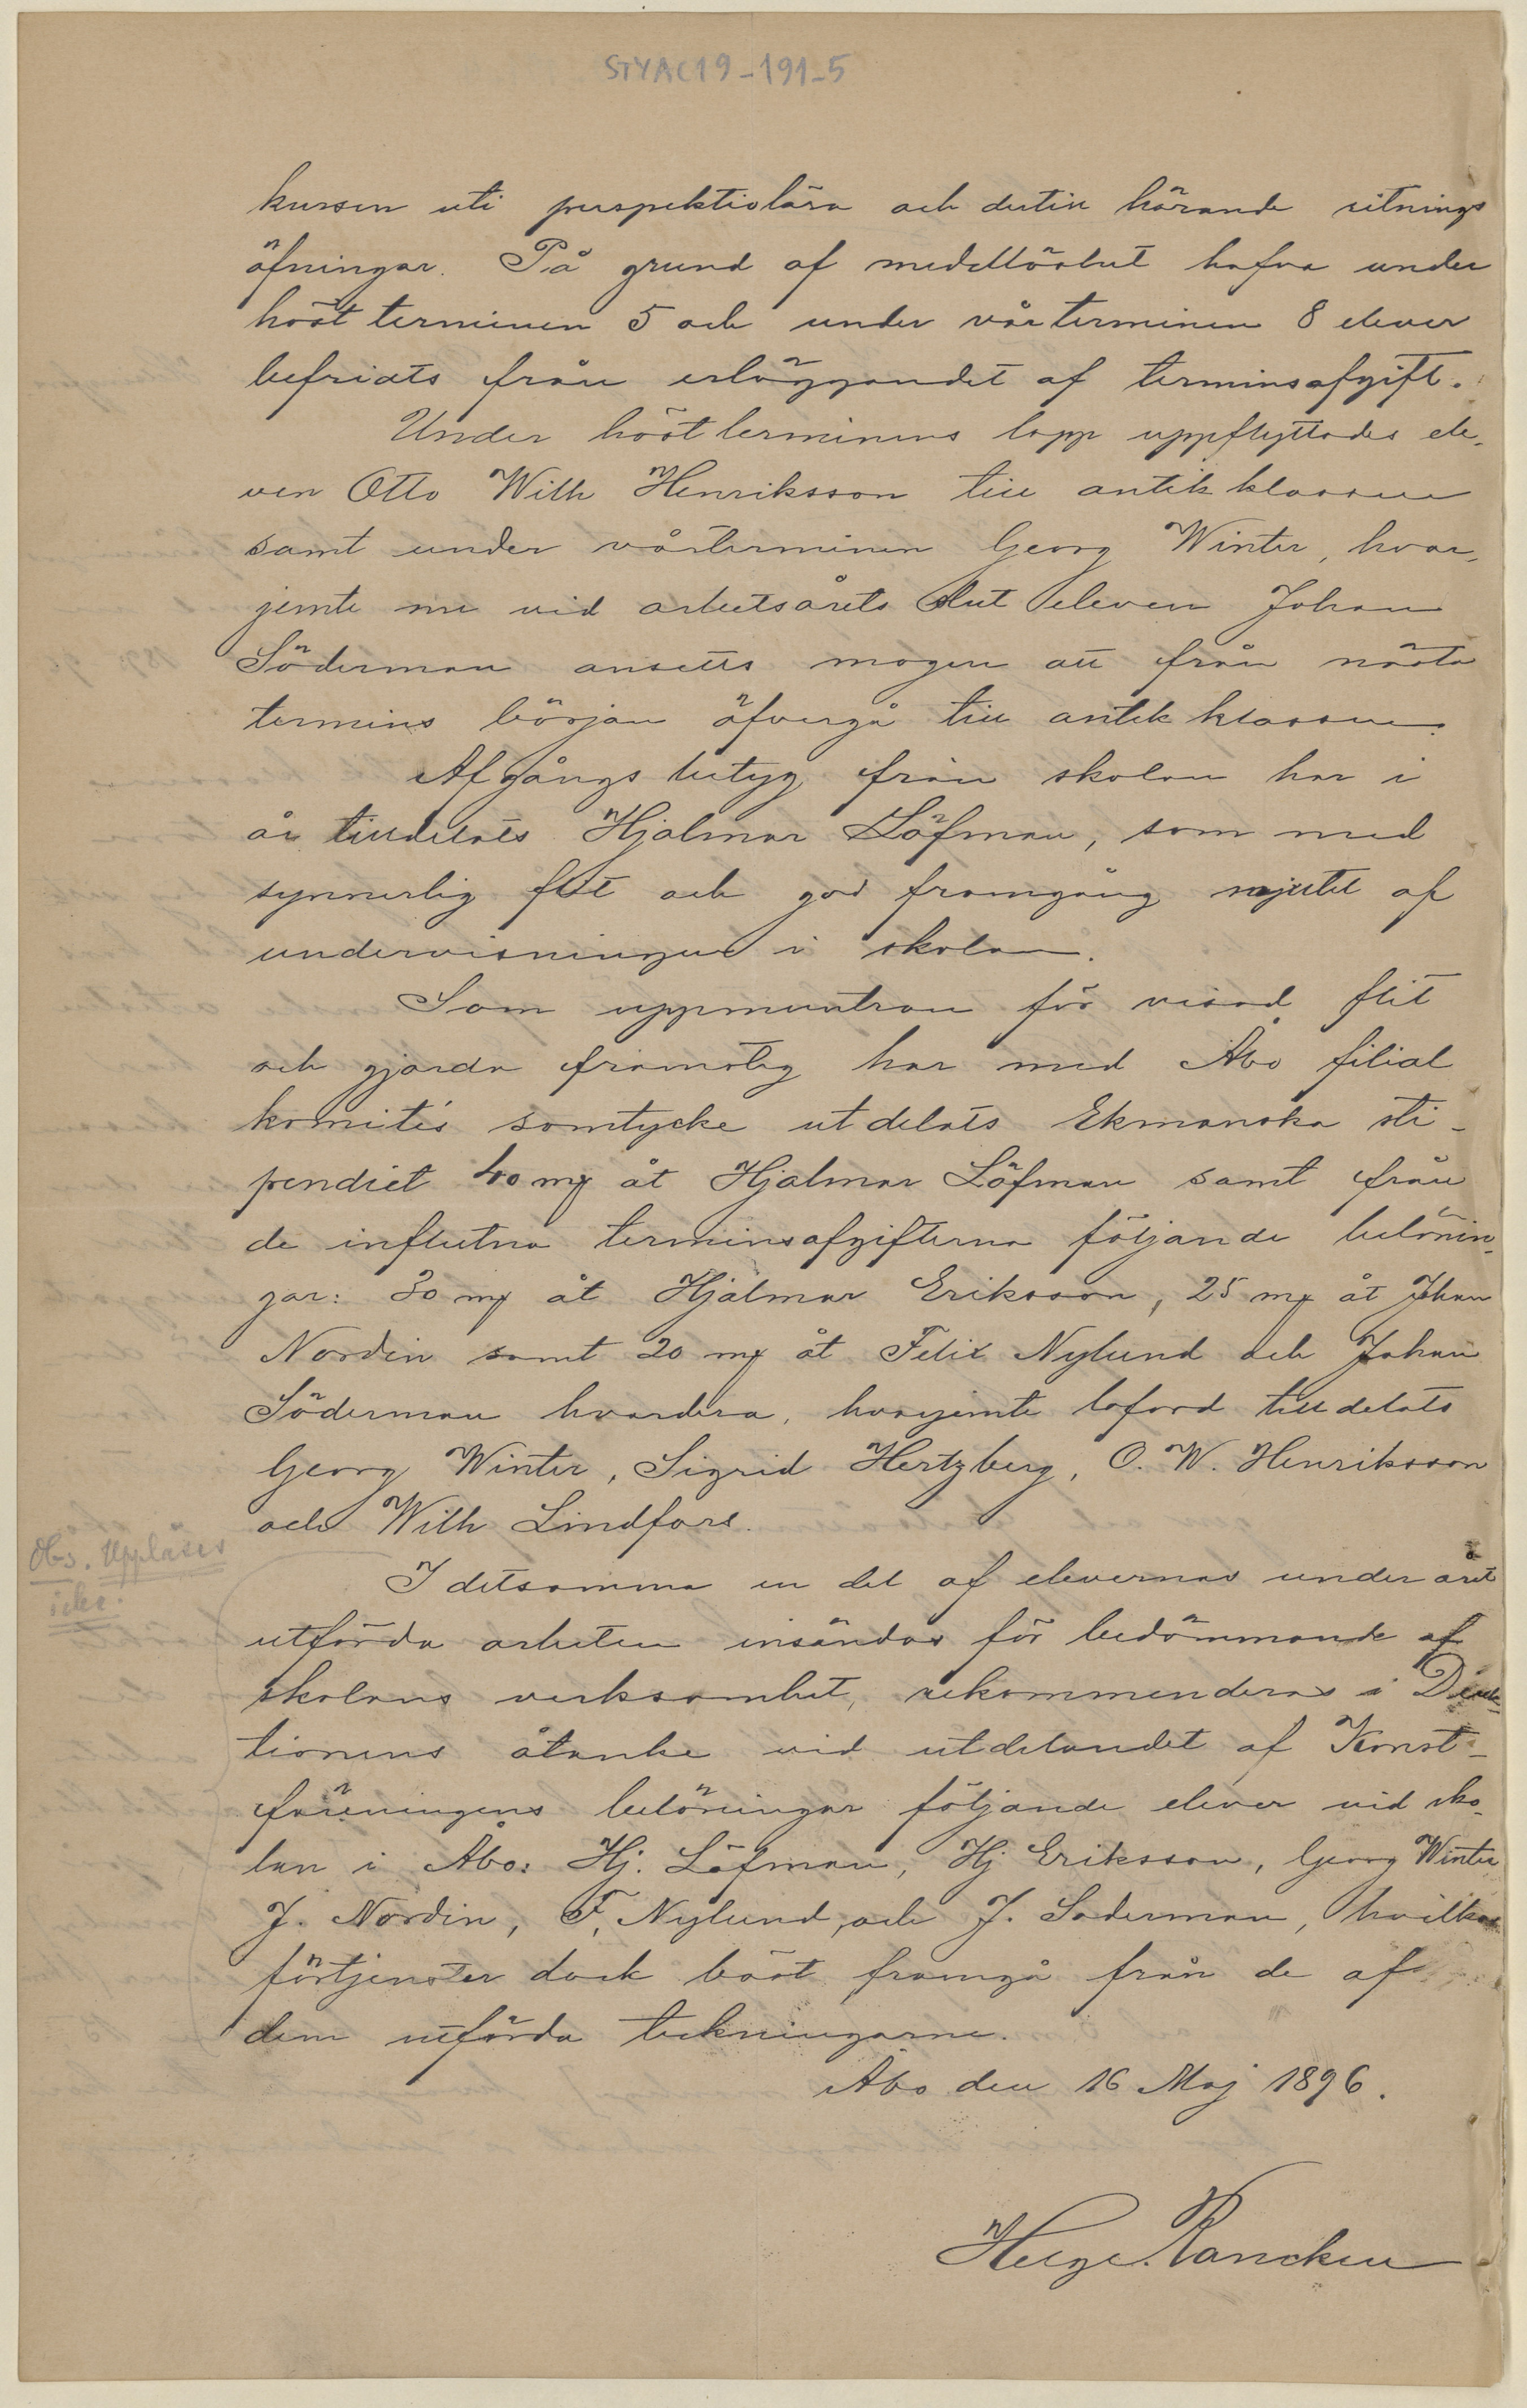 STYAC19-191-5
kursen uti perspektivlära och dertill hörande ritnings
öfningar. På grund af medellöshet hafva under
höst terminen 5 och under vårterminen 8 elever
befriats från erläggandet af terminsafgift.
Under höstterminens lopp uppflyttades ele-
ven Otto Wilh Henriksson till antik klassen
samt under vårterminen Georg Winter, hvar-
jemte nu vid arbetsårets slut eleven Johan
Söderman ansetts mogen att från nästa
termins början öfvergå till antik klassen.
Afgångs betyg från skolan har i
år tilldelats Hjalmar Löfman, som med
synnerlig flit och god framgång njutit af
undervisningen i skolan.
Som uppmuntran för visad flit
och gjorda framsteg har med Åbo filial
komités samtycke utdelats Ekmanska sti-
pendiet 40 mk åt Hjalmar Löfman samt från
de influtna terminsafgifterna följande belönin-
gar: 30 mk åt Hjalmar Eriksson, 25 mk åt Johan
Nordin samt 20 mk åt Felix Nylund och Johan
Söderman hvardera, hvarjemte loford tilldelats
Georg Winter, Sigrid Hertzberg, O. W. Henriksson
och Wilh Lindfors.
Obs. Uppläses
icke.
I detsamma en del af elevernas under året
utförda arbeten insändas för bedömmande af
skolans verksamhet, rekommenderas i Direk-
tionens åtanke vid utdelandet af Konst-
föreningens belöningar följande elever vid sko-
lan i Åbo: Hj. Löfman, Hj Eriksson, Georg Winter
J. Nordin, F. Nylund, och J. Soderman, hvilkas
förtjenster dock bäst framgå från de af
dem utförda teckningarne.
Åbo den 16 Maj 1896.
Helge Rancken